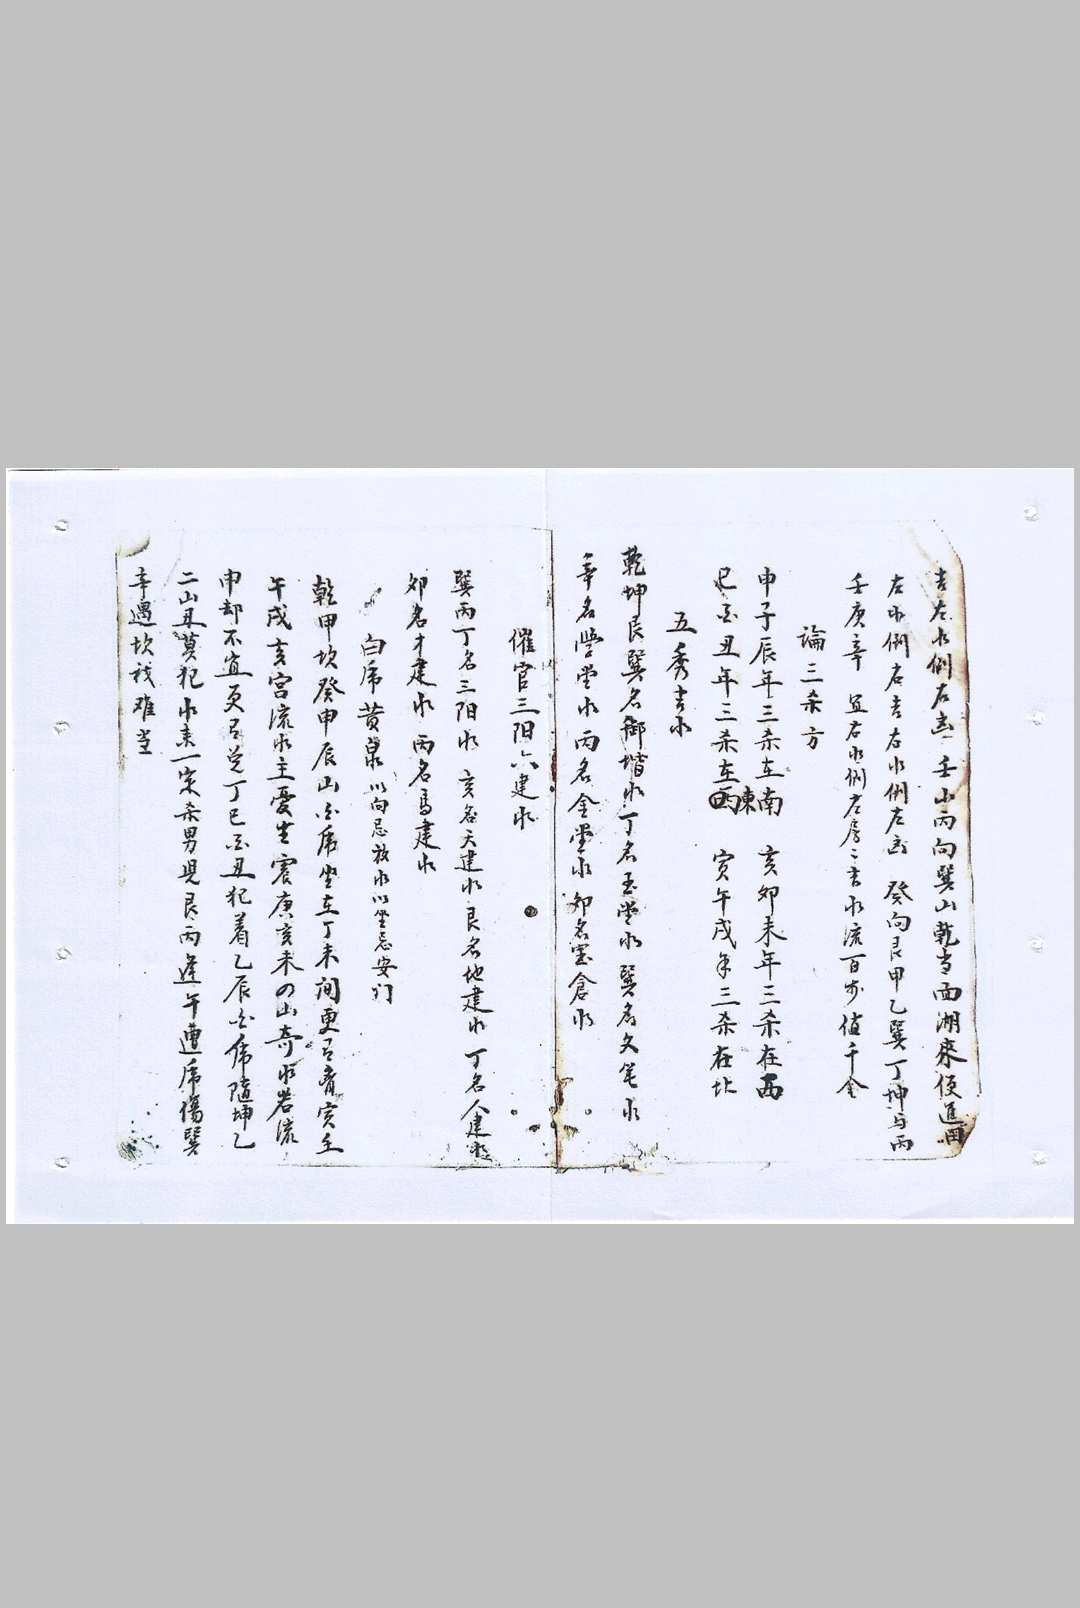 吉左水倒右凶 壬山丙向巽山乾当面湖来便進田
左水倒右吉右水倒左凶 癸向艮甲乙巽丁坤与丙
壬庚辛 宜右水倒左房二吉水流百步值千金
論三杀方
申子辰年三杀在南 亥卯未年三杀在西
巳酉丑年三杀在東 寅午戌年三杀在北
五秀吉水
乾坤艮巽名御堦水丁名玉堂水巽名文笔水
辛名學堂水丙名金堂水卯名宝倉水
催官三阳六建水
巽丙丁名三阳水 亥名天建水艮名地建水丁名人建水
卯名才建水 丙名馬建水
白虎黄泉以向忌放水以坐忌安门
乾甲坎癸申辰山白虎坐在丁未间更有寅主
午戌亥宫流水主憂生震庚亥未の山奇水若流
申却不宜更有兑丁巳酉丑犯着乙辰白虎隨坤乙
二山丑莫犯水来一定杀男児艮丙逢午遭虎傷巽
辛遇坎我难当